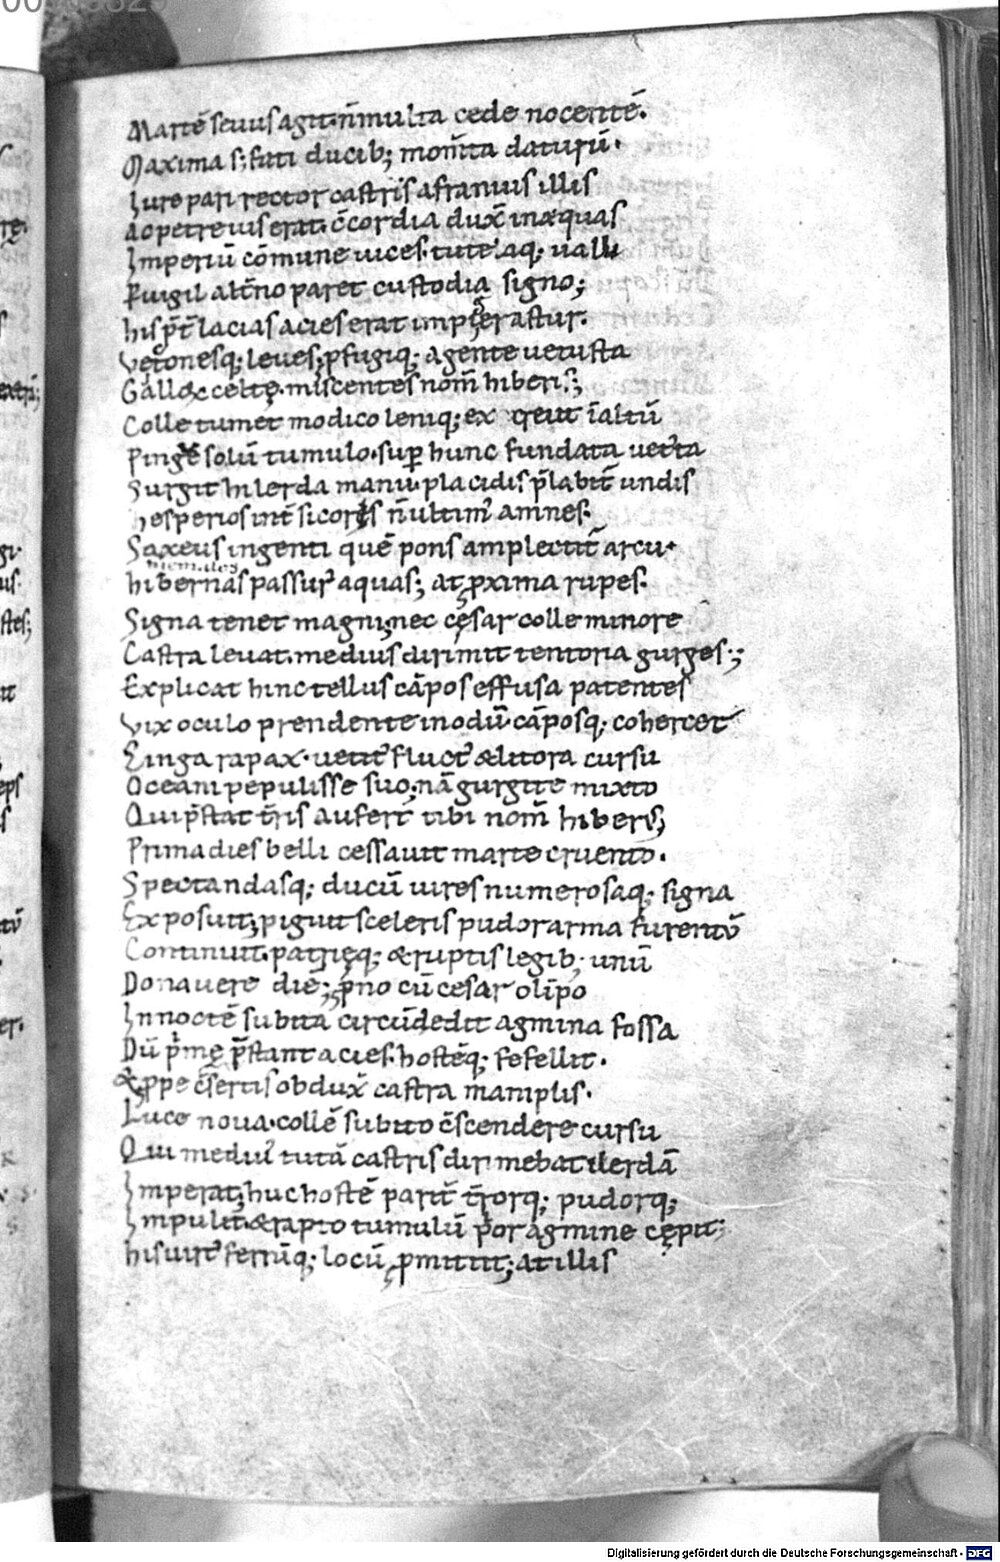 Martē seuus agit. n̄ multa cede nocentē.
Maxima s; fati ducib; mom̄ta daturū.
Iure pari rector castris afranius illis
Ac petreius erat. c̄cordia dux̄ in æquas
Imperiū cōmune uices. tutelaq; ualli
ꝑuigil alt̄no paret custodia signo;
his p̄t̄ lacias acies erat impiḡ astur.
Vetonesq; leues; ꝓfugiq; a gente uetusta
Gallo℞ celtę. miscentes nom̄ hiberis;
Colle tumet modico leniq; ex creuit ī altū
Pingue solū tumulo. suꝑ hunc fundata uet᷒ta
Surgit hilerda manu. placidis p̄labit᷒ undis
hesperios int̄ sicoris n̄ ultim᷒ amnes.
Saxeus ingenti quē pons amplectit᷒ arcu.
hibernas passur᷒ aquas; at ꝓxima rupes.
Signa tenet magni; nec cęsar colle minore
Castra leuat. medius dirimit tentoria gurges;
Explicat hinc tellus cāpos effusa patentes
Vix oculo prendente modū. cāposq; cohercet
Cinga rapax. uetit᷒ fluct᷒ & litora cursu
Oceani pepulisse suo; nā gurgite mixto
Qui p̄stat t̄ris aufert tibi nom̄ hiberus;
Prima dies belli cessauit marte cruento.
Spectandasq; ducū uires numerosaq; signa
Exposuit; piguit sceleris pudor arma furentū
Continuit. patrięq; & ruptis legib; unū
Donauere diē; p̄no cū cesar olīpo
In noctē subita circūdedit agmina fossa
Dū p̄mę p̄stant acies. hostēq; fefellit.
& ꝓpe c̄sertis obdux̄ castra maniplis.
Luce noua. collē subito c̄scendere cursu
Qui medi᷒ tutā castris dirimebat ilerdā
Imperat; huc hostē parit̄ t̄rorq; pudorq;
Impulit. & rapto tumulū p̄or agmine cępit;
his uirt᷒ ferrūq; locū ꝓmittit; at illis